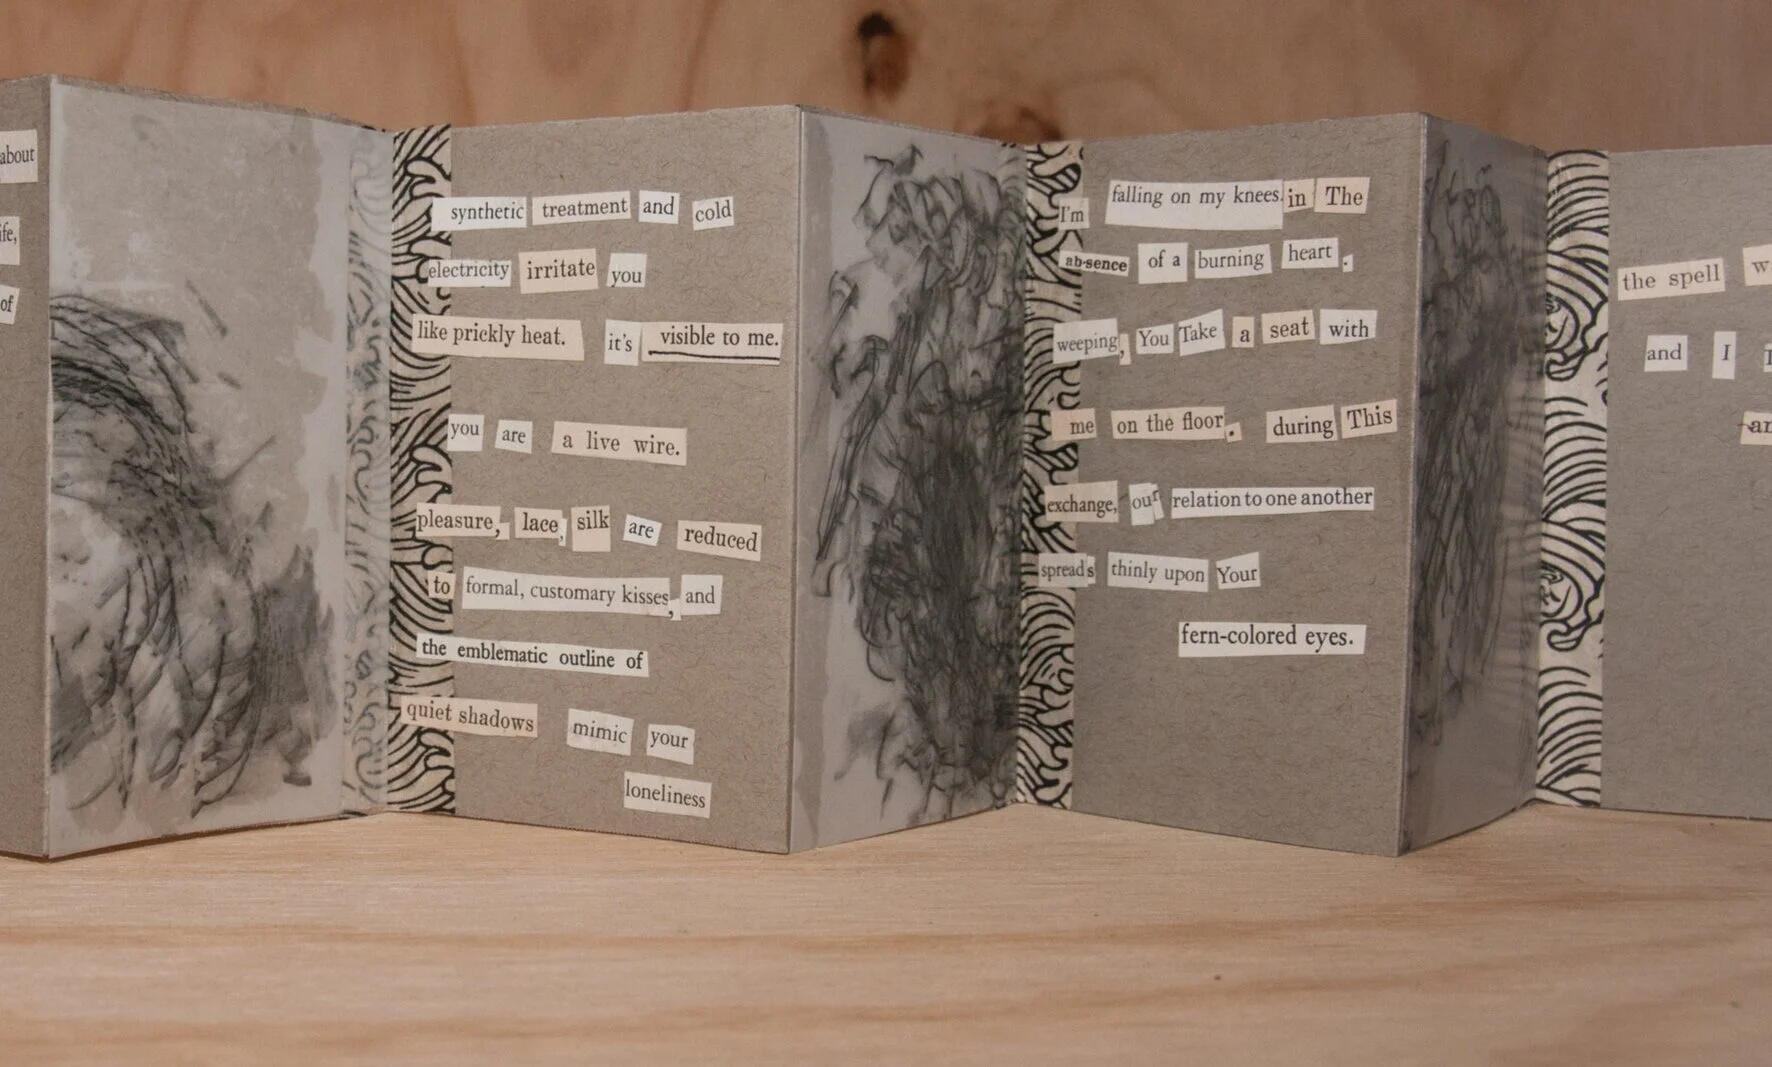 about
of
synthetic treatment and cold
electricity irritate you
like prickly heat. it's visible to me.
you are a live wire.
pleasure, lace, silk are reduced
to formal, customary kisses, and
the emblematic outline of
quiet shadows mimic your
loneliness
I'm falling on my knees in The
absence of a burning heart.
weeping, You Take a seat with
me on the floor. during This
exchange, our relation to one another
spreads thinly upon Your
fern-colored eyes.
the spell
and I